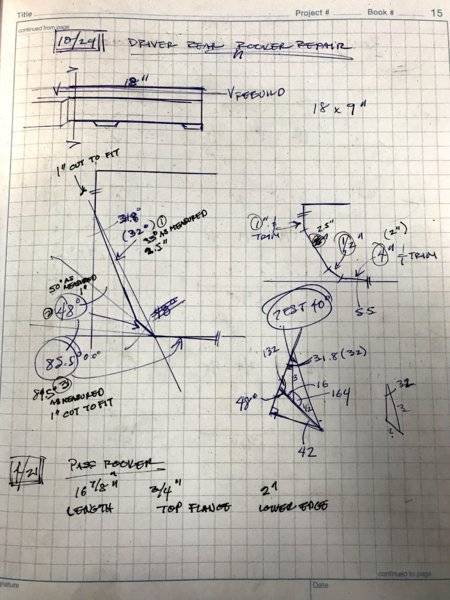 Title
Project #
Book #
15
continued from page
10/29
DRIVER REAR ROCKER REPAIR
18"
REBUILD
18 x 9"
1" CUT TO FIT
31.8°
(32°) ①
AS MEASURED
2.5"
1"
TRIM
2.5"
1/2"
(2")
4"
TRIM
55
50° AS
MEASURED
1"
48°
TEST 40°
85.5°
AS MEASURED
1" CUT TO FIT
132
31.8 (32)
16
164
48°
42
32
1/21
PASS ROCKER
16 7/8" 3/4" 2"
LENGTH TOP FLANGE LOWER EDGE
continued to page
Date